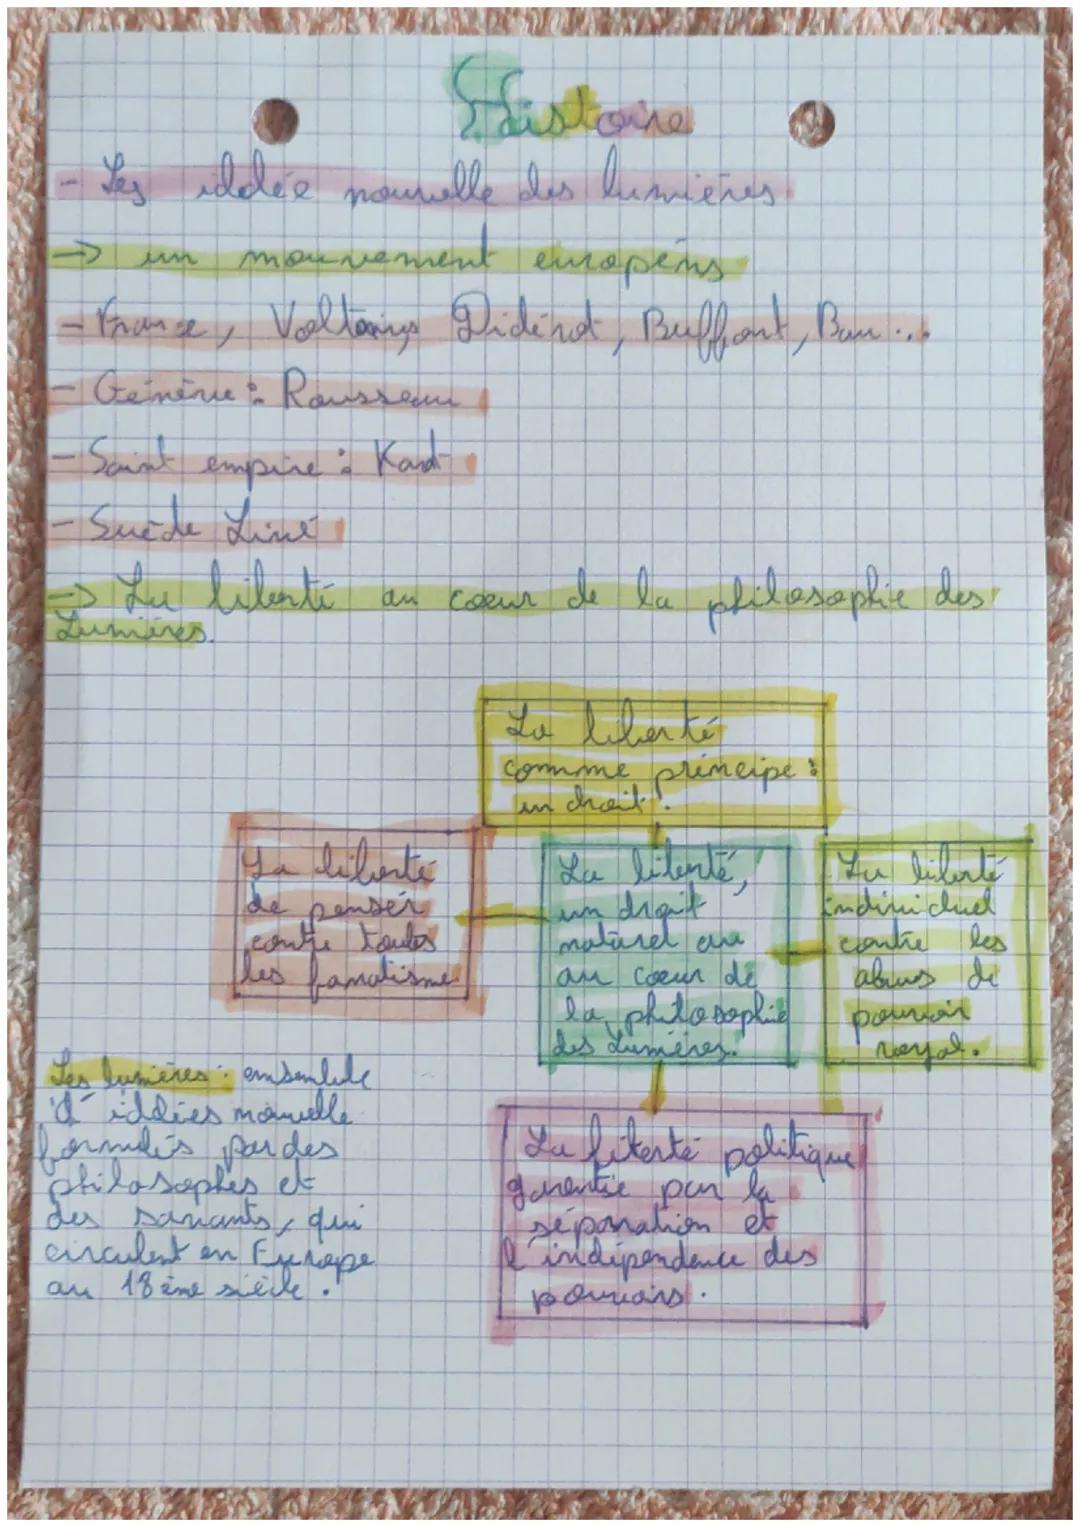 Histoire
- Les iddée nouvelle des lumières.
→ un mouvement europens
- France, Voltaire, Didérot, Buffont, Bau...
- Génève : Rousseau
- Saint empire : Kant
- Suède Liné
→ La liberté au coeur de la philosophie des
Lumières.
La liberté
comme principe :
un droit !
La liberté
de penser
contre toutes
les fanatisme
La liberté,
un droit
naturel au
au coeur de
la philosophie
des Lumières.
La liberté
individuel
contre les
abus de
pouvoir
royal.
Les lumières : ensemble
d' iddées nouvelle
formulés par des
philosophes et
des savants, qui
circulent en Europe
au 18ème siècle.
La liberté politique
garantie par la
séparation et
l'indépendance des
pouvoirs.